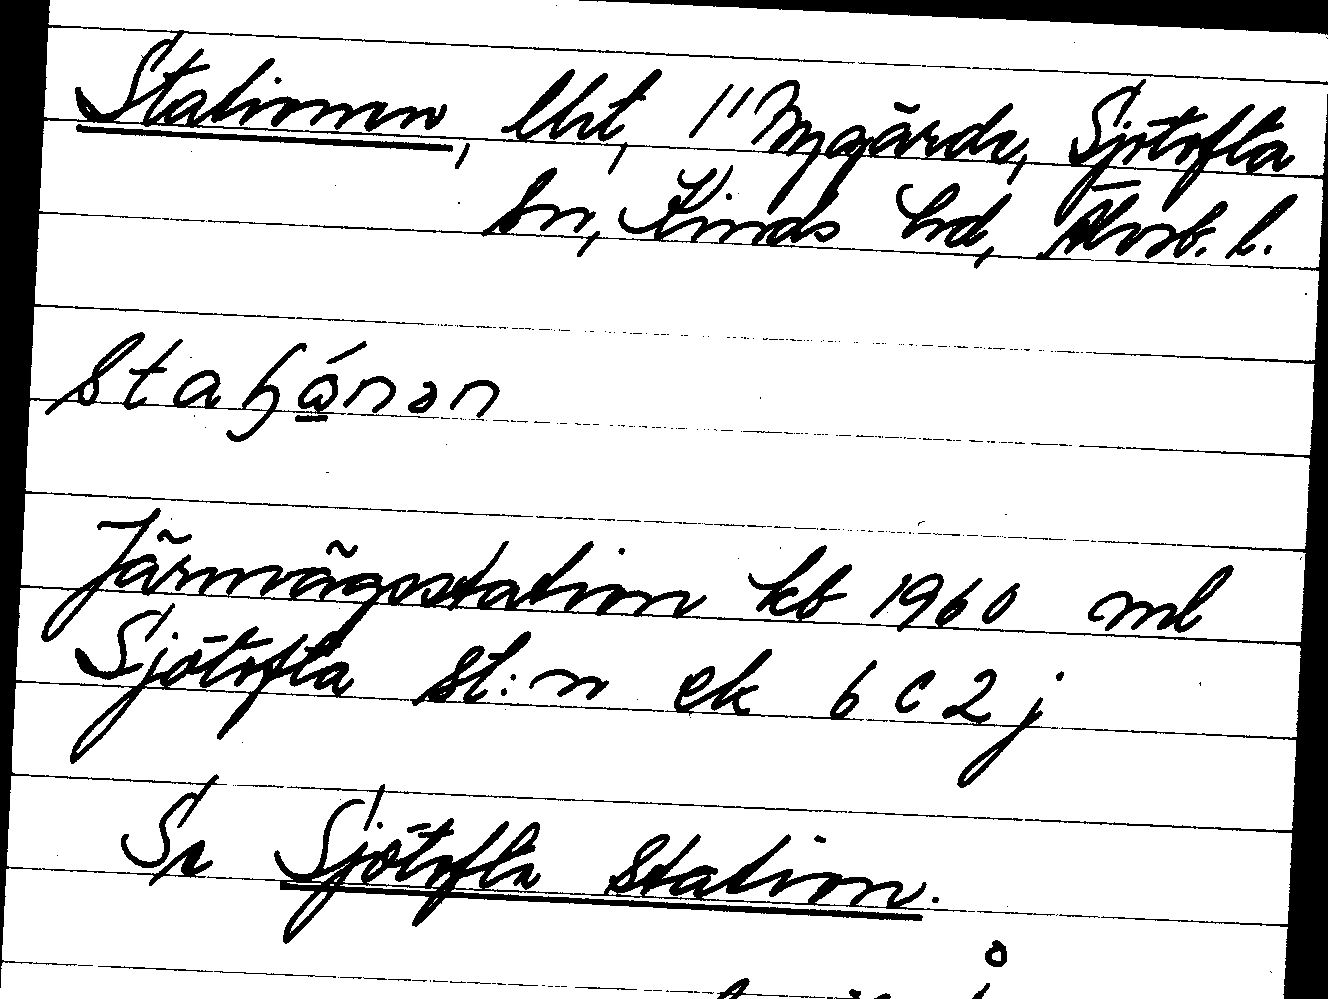 Stationen, lht, 1" Nygärde, Sjötofta
sn, Kinds hd, Älvsb. l.
staɧǻnən
Järnvägsstation kb 1960 ml
Sjötofta st:n ek 6 C 2 j
Se Sjötofta station.